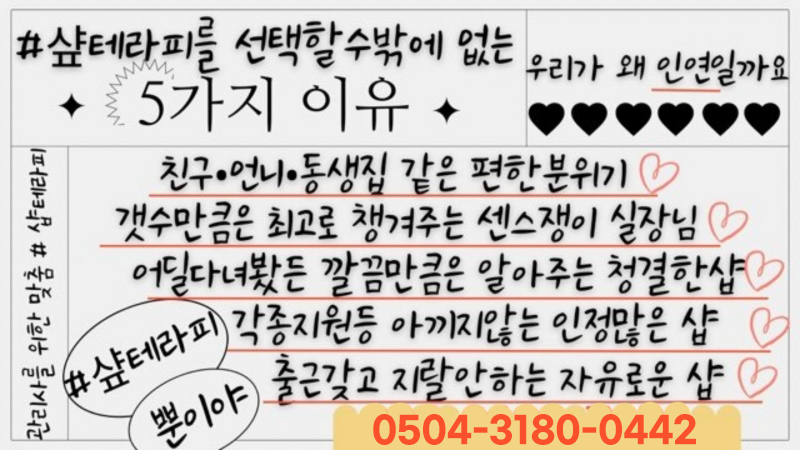 #샾테라피를 선택할수밖에 없는
5가지 이유
우리가 왜 인연일까요
친구•언니•동생집 같은 편한분위기
갯수만큼은 최고로 챙겨주는 센스쟁이 실장님
어딜다녀봤든 깔끔만큼은 알아주는 청결한샵
각종지원등 아끼지않는 인정많은 샵
출근갖고 지랄안하는 자유로운 샵
관리사를 위한 맞춤 # 샵테라피
#샾테라피
뿐이야
0504-3180-0442